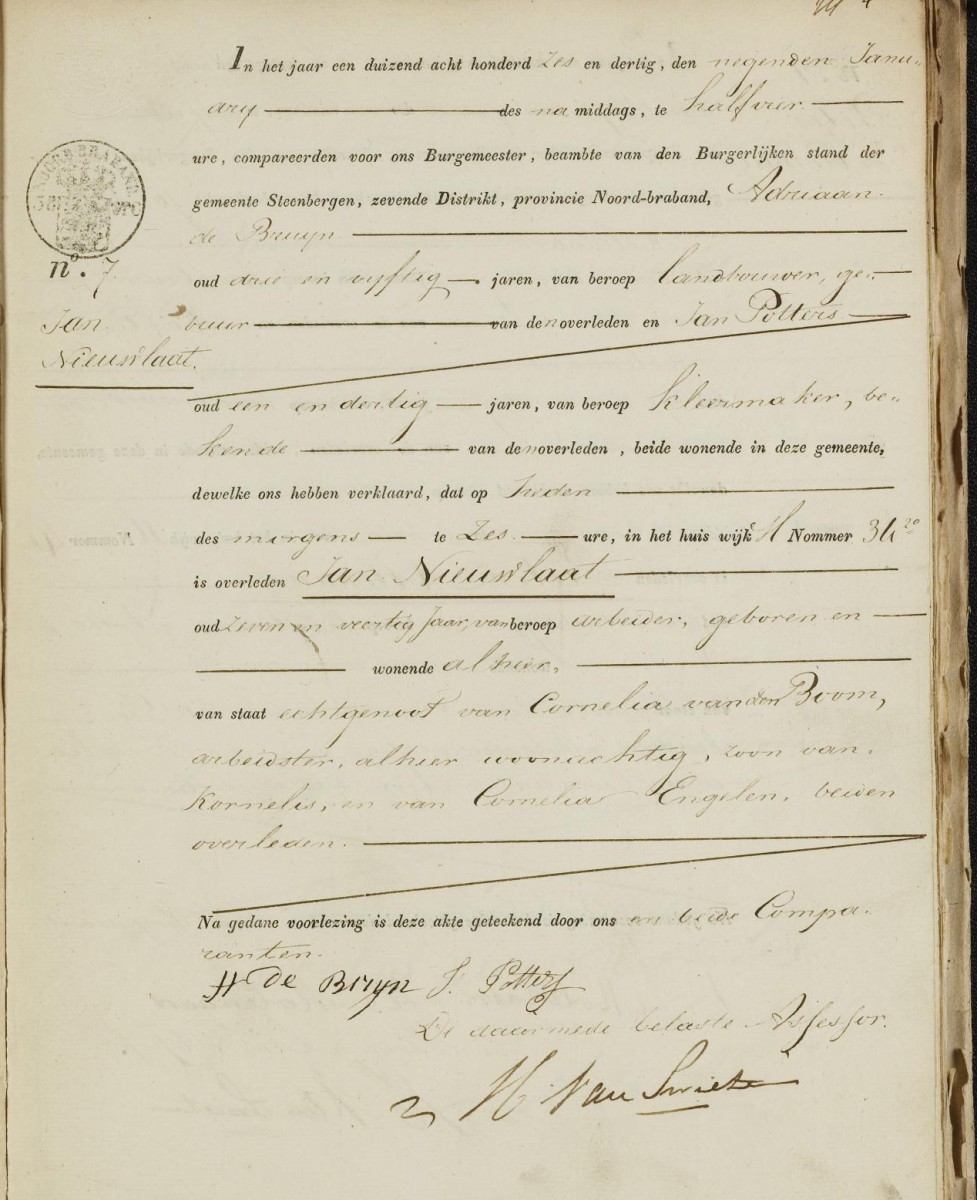 In het jaar een duizend acht honderd zes en dertig, den negenden Janu-
ary des na middags, te half vier
ure, compareerden voor ons Burgemeester, beambte van den Burgerlijken stand der
gemeente Steenbergen, zevende Distrikt, provincie Noord-braband, Adriaan
de Bruyn
NOORD BRABAND
no. 7.
oud drie en vyftig jaren, van beroep landbouwer, ge-
Jan
Nieuwlaat.
buur van den overleden en Jan Potters
oud een en dertig jaren, van beroep kleermaker, be-
kende van den overleden, beide wonende in deze gemeente,
dewelke ons hebben verklaard, dat op heden
des morgens te zes ure, in het huis wijk H Nommer 34
is overleden Jan Nieuwlaat
oud zeven en veertig Jaar, van beroep arbeider, geboren en
wonende alhier,
van staat echtgenoot van Cornelia van den Boom,
arbeidster, alhier woonachtig, zoon van
Kornelis, en van Cornelia Engelen, beiden
overleden.
Na gedane voorlezing is deze akte geteekend door ons en beide Compa-
ranten.
A de Bruyn J. Potters
De daarmede belaste Assessor.
H Van Swieten